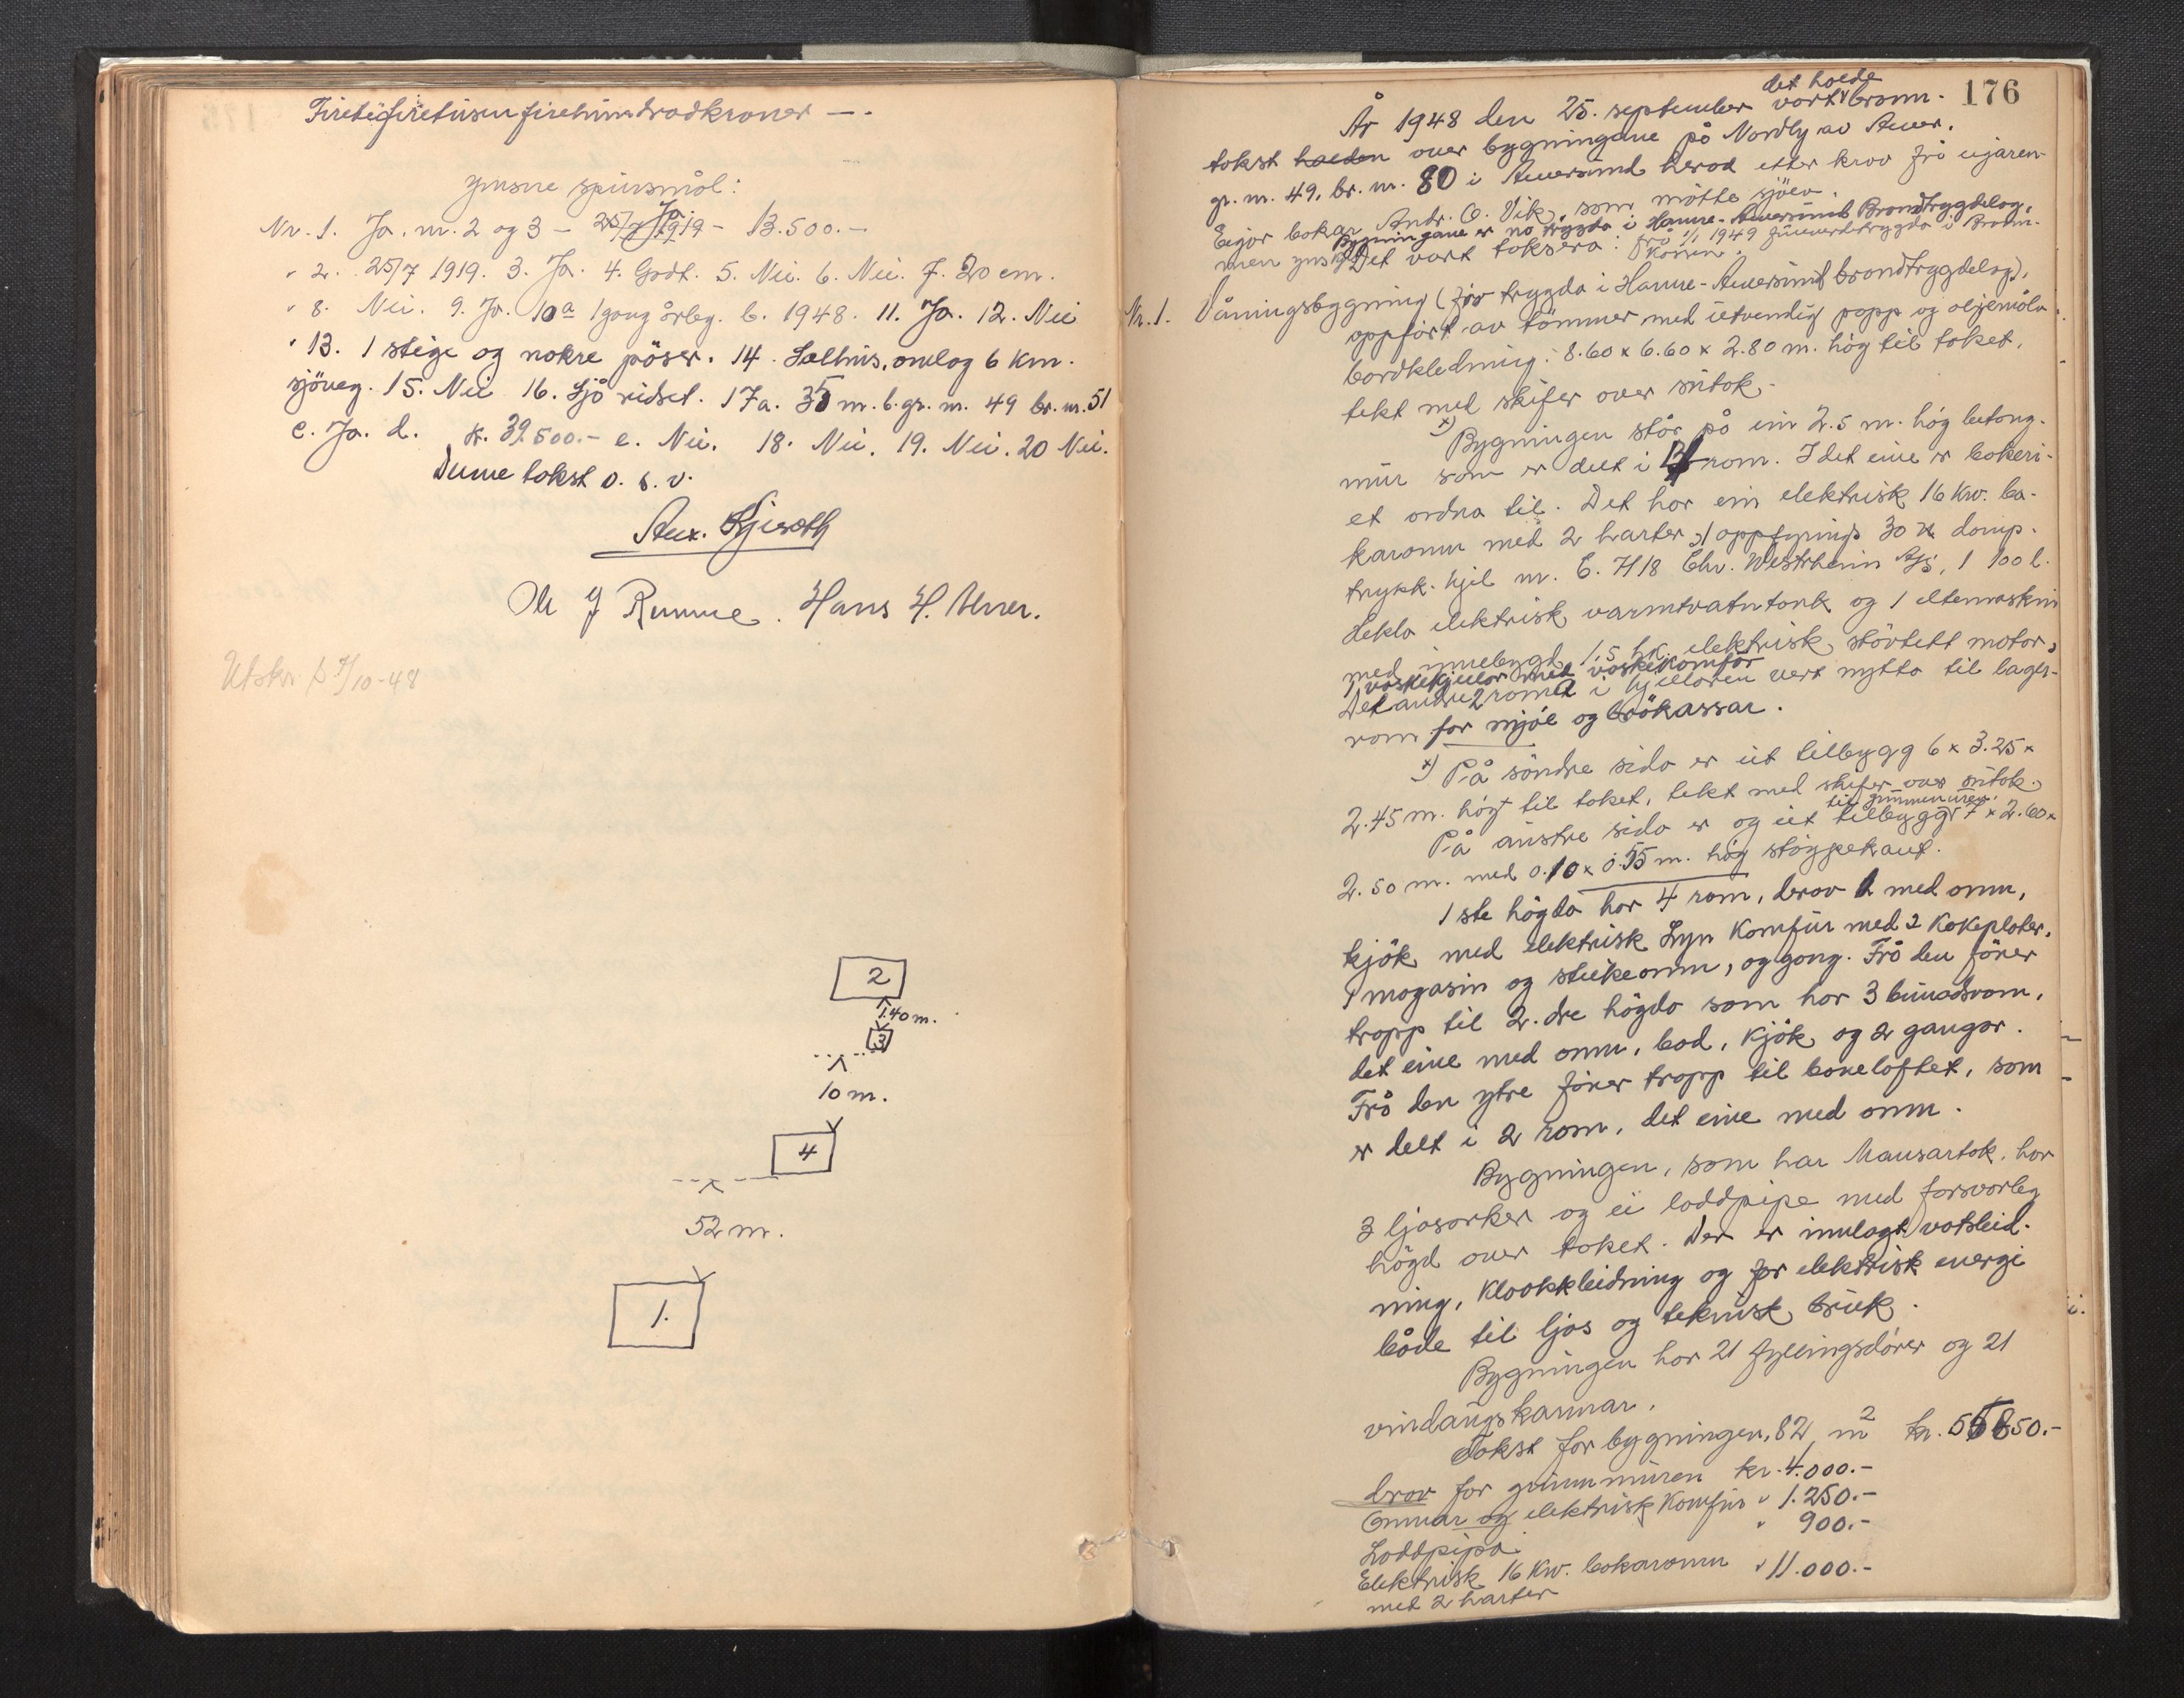 Firetifiretusenfirehundradkroner —.
Ymsne spursmål:
Nr. 1. Ja. nr. 2 og 3 – 25/7 1919 – 13.500.–
Ja.
" 2. 25/7 1919. 3. Ja. 4. Godt. 5. Nei. 6. Nei. 7. 20 cm.
" 8. Nei. 9. Ja. 10a 1 gang årleg. b. 1948. 11. Ja. 12. Nei
" 13. 1 stige og nokre pöser. 14. Sælhus, omlag 6 km.
sjöveg. 15. Nei 16. Sjö ridset. 17a. 35 m. b. gr. nr. 49 br. nr. 51
c. Ja. d. kr. 39.500.– e. Nei. 18. Nei. 19. Nei. 20 Nei.
Denne takst o. s. v.
Hans H.
Utskr. 7/10-48
2
1.40 m.
3
10 m.
4
52 m.
1.
176
det halde
År 1948 den 25. september vart brann-
takst halden over bygningane på Nordby av Alver,
gr. nr. 49, br. nr. 80 i Alversund herad etter krav frå eigaren
Eigar bakar Andr. O. Vik, som møtte sjölv.
Bygningane er no trygda i Hamre-Alversund Brandtrygdelag,
men ynskjer frå 1/1 1949 fullverdetrygda i Brann-
kassen.
Det vart taksera:
Nr. 1. Våningsbygning (för trygda i Hamre-Alversund brandtrygdelag),
oppfört av tömmer med utvendig papp og oljemåla
bordkledning. 8.60 x 6.60 x 2.80 m. hög til taket,
tekt med skifer over sutak.
x) Bygningen står på ein 2.5 m. hög betong-
mur som er delt i 3 rom. I det eine er bakeri-
et ordna til. Det har ein elektrisk 16 Kw. ba-
karomn med 2 harter, 1 oppfyrings 30 damp-
trykk-kjel nr. E. 7118 Chr. Westrheim A/s, 1 100 l.
elektrisk varmtvatntank og 1 eltemaskin
med innebygd 1,5 hk. elektrisk stövtett motor,
1 vaskekjelar med vaskekomför
Det andre 2 roma i kjellaren vert nytta til lager-
rom for mjöl og brökassar.
x) På söndre sida er eit tilbygg 6 x 3.25 x
2.45 m. högt til taket, tekt med skifer over sutak.
til grunnmuren.
På austre sida er og eit tilbygg 7 x 2.60 x
2.50 m. med 0.10 x 0.55 m. hög stöypekant.
1ste högda har 4 rom, derav 2 med omn,
kjök med elektrisk Lyn Komfur med 2 Kokeplater,
1 magasin og steikeomn, og gang. Frå den förer
trapp til 2.dre högda som har 3 bunadsrom,
det eine med omn, bod, kjök og 2 gangar.
Frå den ytre förer trapp til baneloftet, som
er delt i 2 rom, det eine med omn.
Bygningen, som har Mansartak, har
3 ljosarker og ei loddpipe med forsvarleg
högd over taket. Der er innlagt vatsleid-
ning, kloakkleidning og for elektrisk energi
både til ljos og teknisk bruk.
Bygningen har 21 fyllingsdörer og 21
vindaugskarmar.
Takst for bygningen, 82 m2 kr. 55850.–
Derav for grunnmuren kr. 4.000.–
Omnar og elektrisk Komfur " 1.250.–
Loddpipa " 900.–
Elektrisk 16 Kw. bakaromn " 11.000.–
med 2 harter